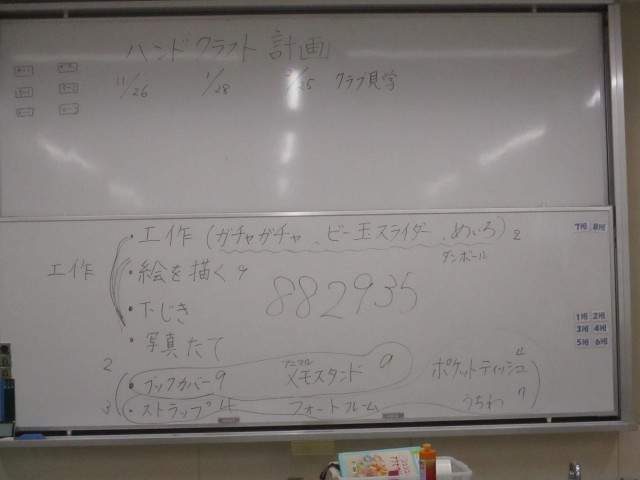 ハンドクラフト 計画
11/26 1/28 2/25 クラブ見学
工作
・工作 (ガチャガチャ、ビー玉スライダー、めいろ) 2
ダンボール
・絵を描く 9
882935
・下じき
・写真たて
2 ・ブックカバー 9 メモスタンド 9 ポケットティッシュ 4
3 ・ストラップ 4 フォートフレーム うちわ 7
7班 8班
1班 2班
3班 4班
5班 6班